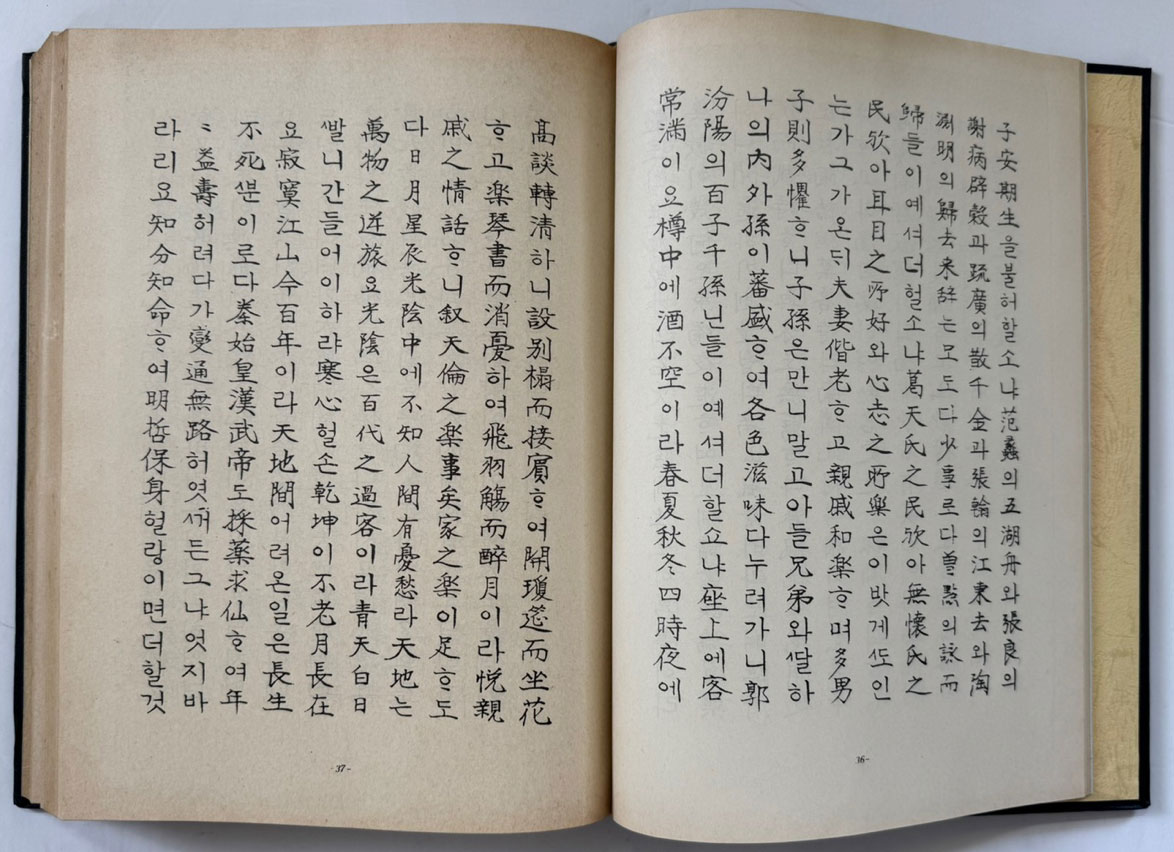 子安期生을불허할소냐范蠡의五湖舟와張良의
謝病辟穀과疏廣의散千金과張翰의江東去와淘
淵明의歸去来辞는모도다少享르다曽㸃의詠而
歸들이예셔더헐소냐葛天氏之民欤아無懷氏之
民欤아耳目之所好와心志之所樂은이밧게ᄯᅩ인
는가그가온ᄃᆡ夫妻偕老ᄒᆞ고親戚和楽ᄒᆞ며多男
子則多懼ᄒᆞ니子孫은만니말고아들兄弟와ᄯᅡᆯ하
나의內外孫이蕃盛ᄒᆞ여各色滋味다누려가니郭
汾陽의百子千孫닌들이예셔더할쇼냐座上에客
常滿이요樽中에酒不空이라春夏秋冬四時夜에
-36-
高談轉清하니設別榻而接賓ᄒᆞ여開瓊筵而坐花
ᄒᆞ고楽琴書而消憂하여飛羽觴而醉月이라悦親
戚之情話ᄒᆞ니叙天倫之楽事矣家之楽이足ᄒᆞ도
다日月星辰光陰中에不知人間有憂愁라天地는
萬物之逆旅요光陰은百代之過客이라青天白日
ᄲᅡᆯ니간들어이하랴寒心헐손乾坤이不老月長在
요寂寞江山今百年이라天地間어려온일은長生
不死ᄲᅮᆫ이로다秦始皇漢武帝도採薬求仙ᄒᆞ여年
〻益壽허려다가變通無路허엿거든그냐엇지바
라리요知分知命ᄒᆞ여明哲保身헐랑이면더할것
-37-